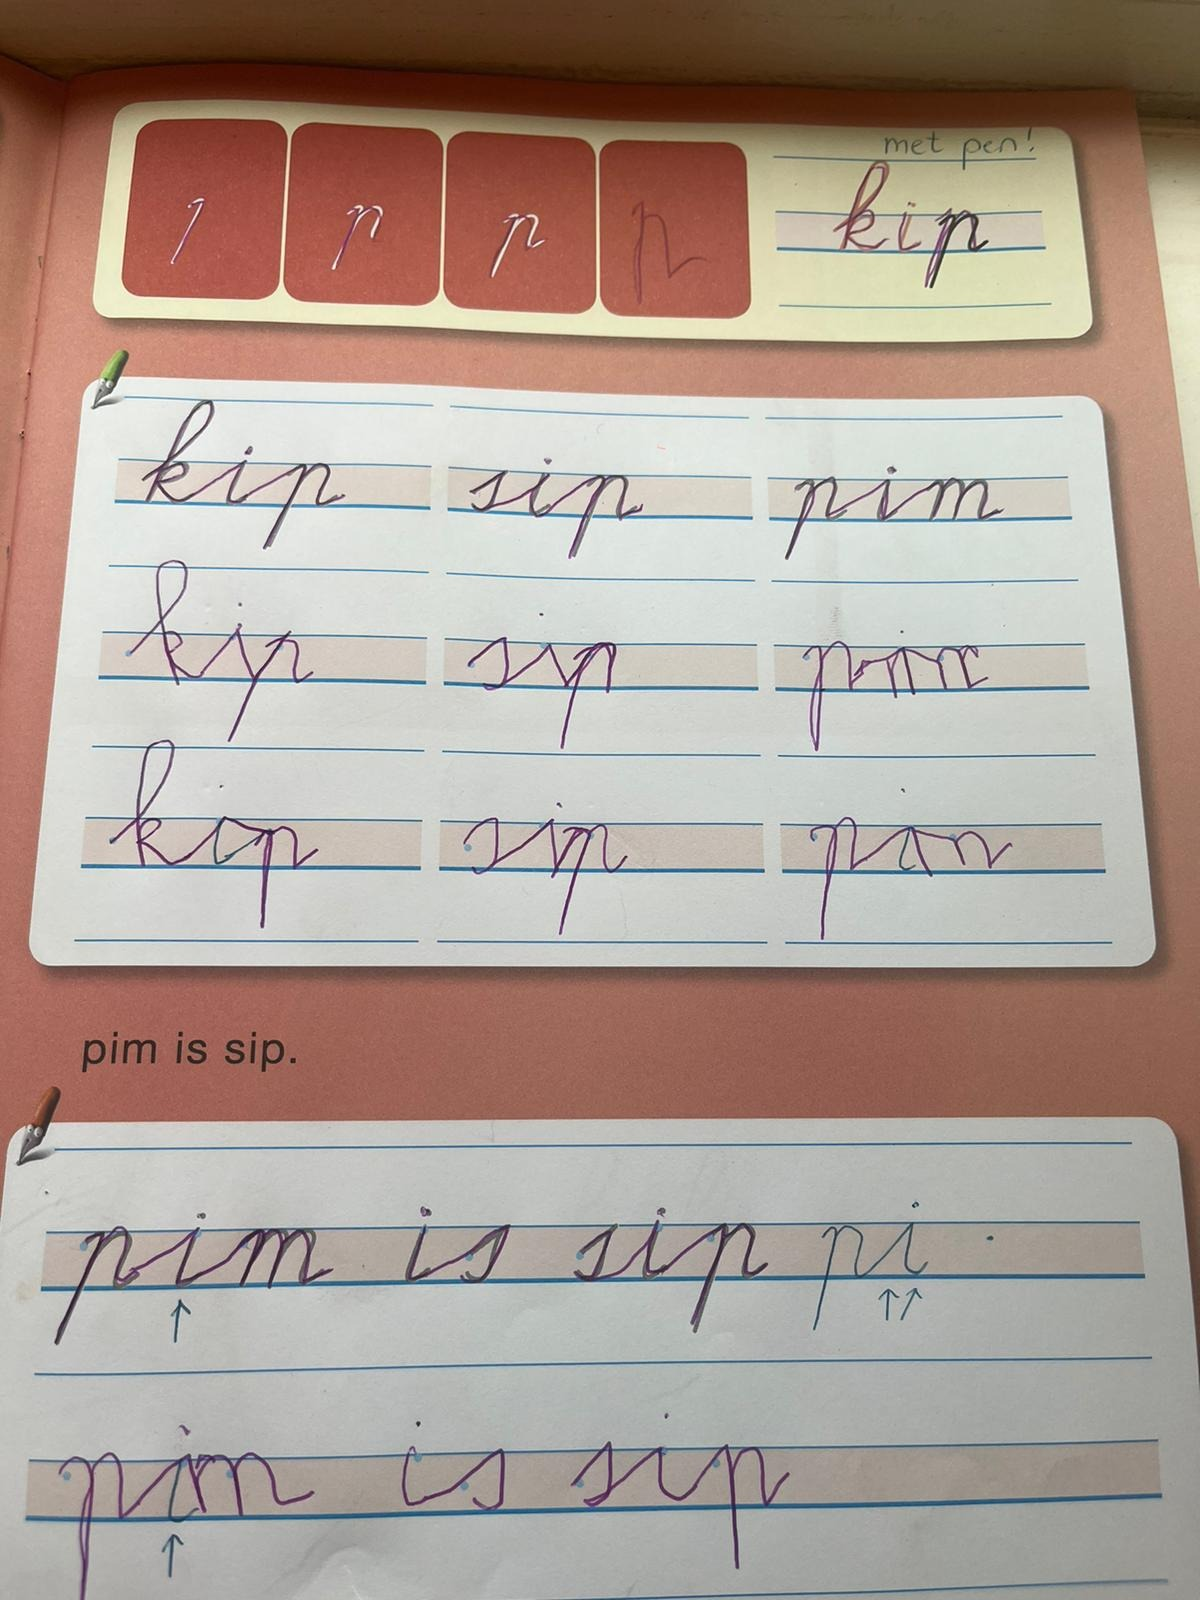 met pen!
p p p
kip
kip sip pim
kip sip pim
kip sip pim
pim is sip.
pim is sip pi .
pim is sip